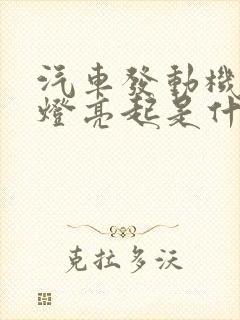 汽車發動機
燈亮起是什
克拉多沃